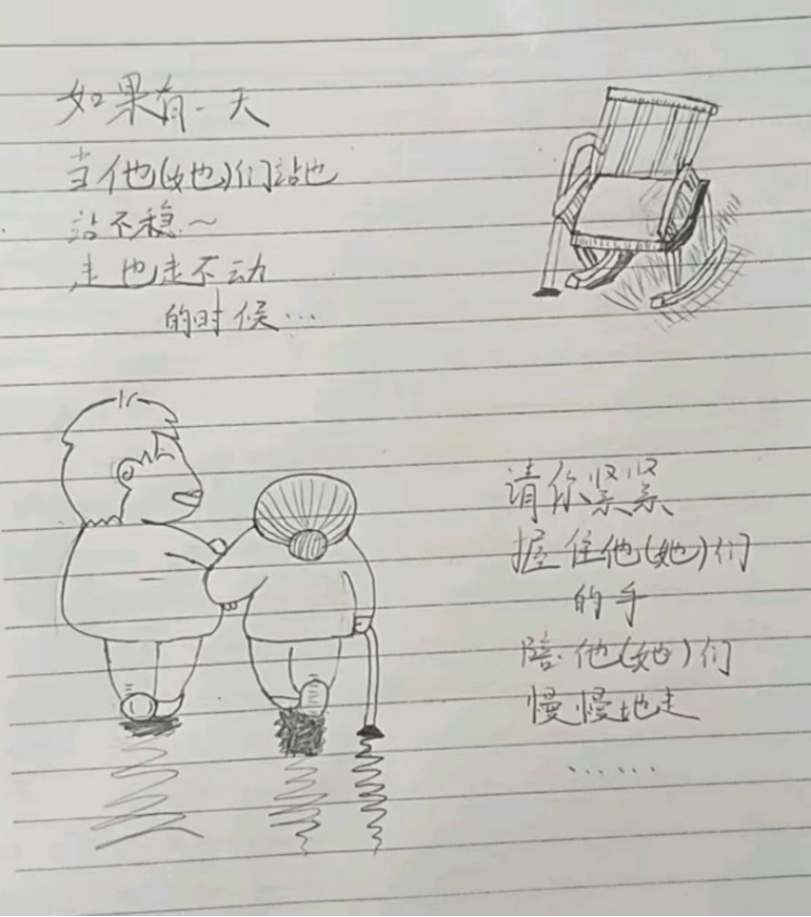 如果有一天
当他(她)们站也
站不稳～
走也走不动
的时候…
请你紧紧
握住他(她)们
的手
陪他(她)们
慢慢地走
……